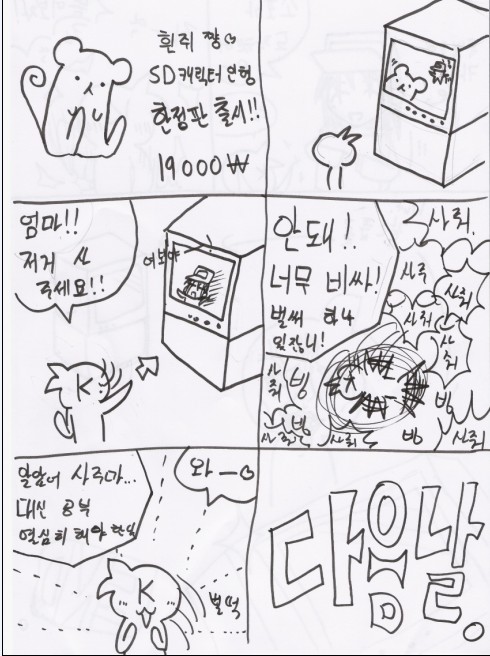 흰쥐 짱♡
SD캐릭터인형
한정판 출시!!
19000₩
엄마!!
저거 사
주세요!!
K
안돼!.
너무 비싸!
벌써 하나
있잖니!
사줘.
사줘
사줘
사줘
사줘
사줘
빙
빙
사줘
사줘
빙
사줘
알았어 사주마...
대신 공부
열심히 해야 한다
와—♡
K
벌떡
다음날.